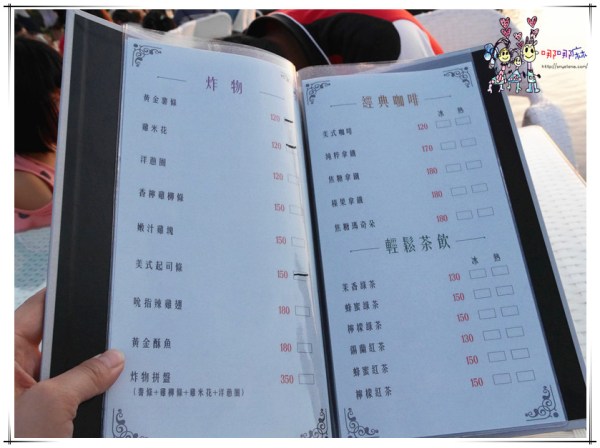 炸物
黃金薯條 120
雞米花 120
洋蔥圈 120
香檸雞柳條 150
嫩汁雞塊 150
美式起司條 150
吮指辣雞翅 180
黃金酥魚 180
炸物拼盤 350
(薯條+雞柳條+雞米花+洋蔥圈)
經典咖啡
冰 熱
美式咖啡 120
純粹拿鐵 170
焦糖拿鐵 180
榛果拿鐵 180
焦糖瑪奇朵 180
輕鬆茶飲
冰 熱
茉香綠茶 130
蜂蜜綠茶 150
檸檬綠茶 150
錫蘭紅茶 130
蜂蜜紅茶 150
檸檬紅茶 150
哪哪麻